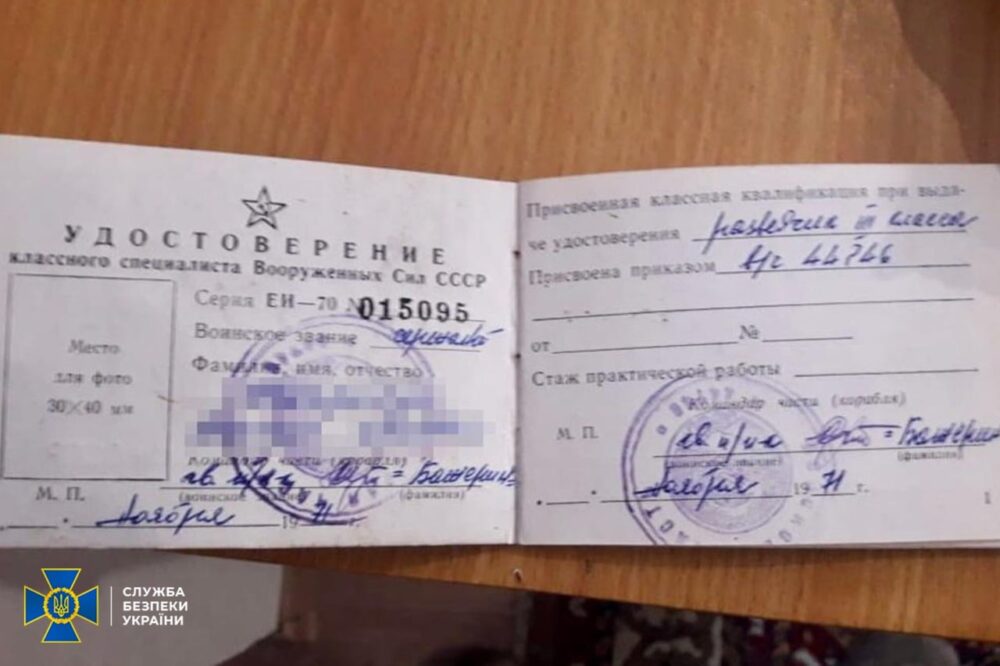 УДОСТОВЕРЕНИЕ
классного специалиста Вооруженных Сил СССР
Серия ЕИ—70 № 015095
Воинское звание
Фамилия, имя, отчество
Место
для фото
30×40 мм
Командир части (корабля)
гв п/п-к = Бажерин
(воинское звание) (фамилия)
М. П.
ноября 1971 г.
Присвоенная классная квалификация при выда-
че удостоверения разведчик III класса
Присвоена приказом в/ч 44746
от № 
Стаж практической работы
Командир части (корабля)
М. П.
гв п/п-к = Бажерин
(воинское звание) (фамилия)
ноября 1971 г.
1
СЛУЖБА
БЕЗПЕКИ
УКРАЇНИ